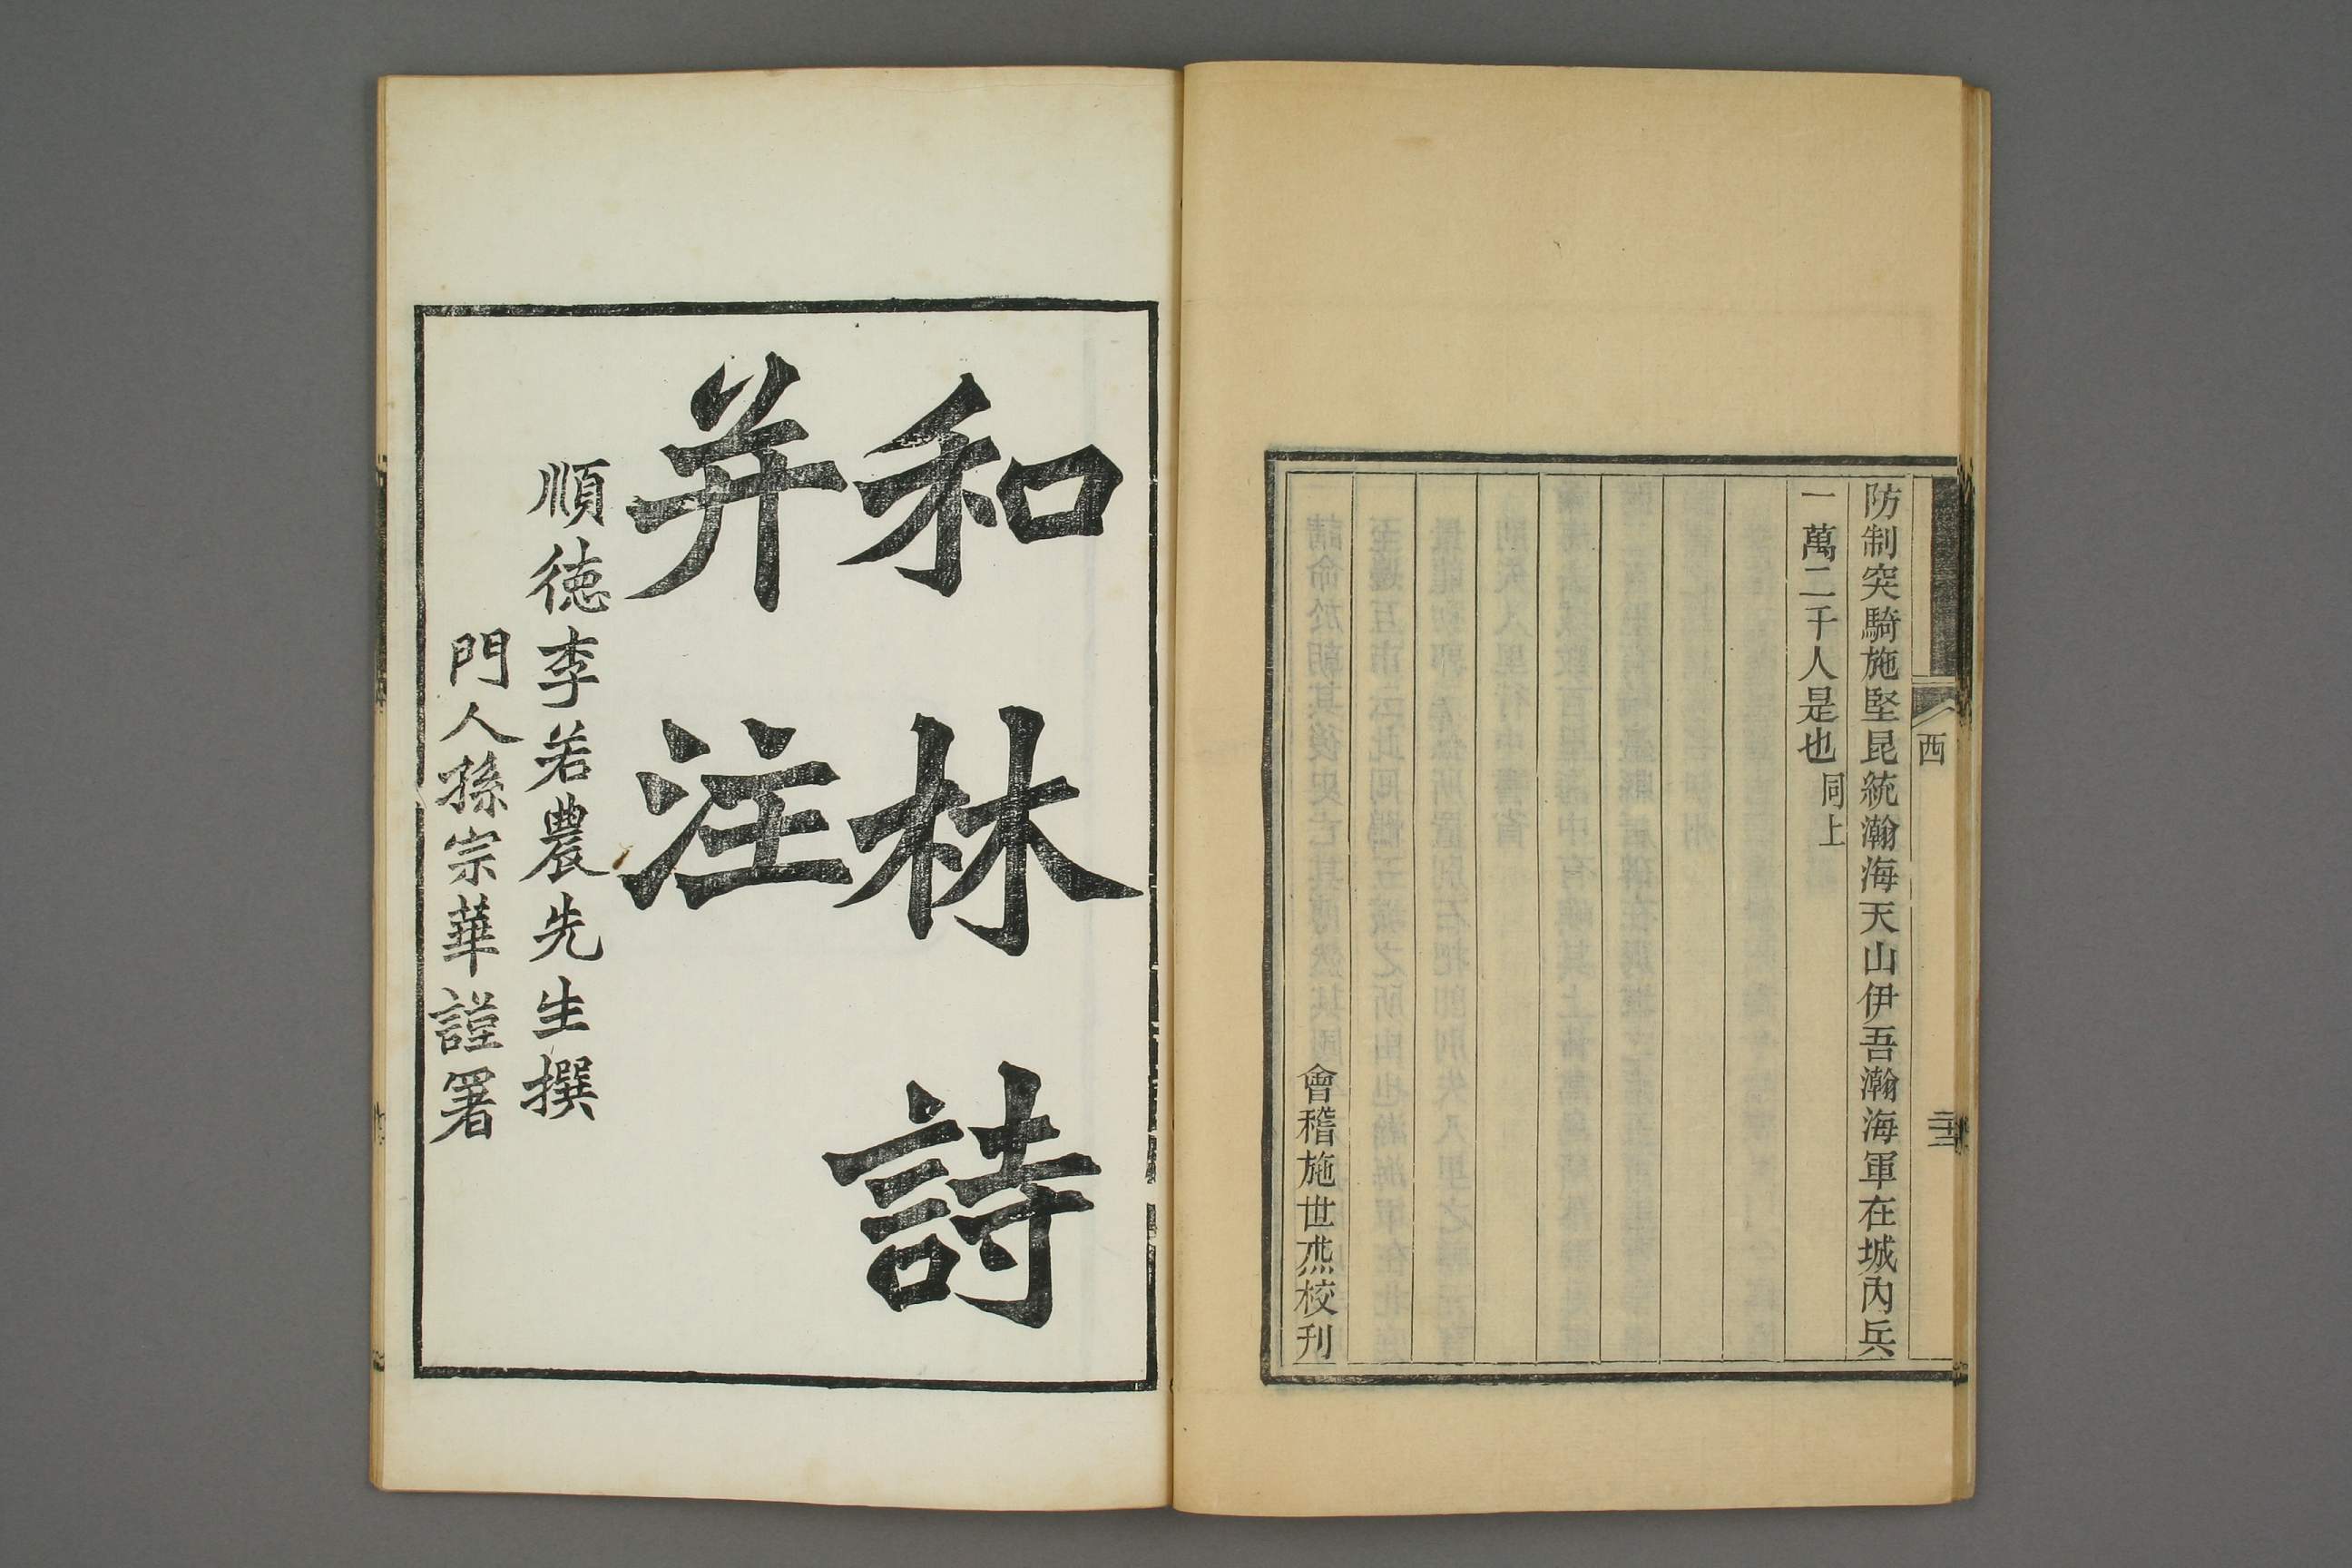 防制突騎施堅昆統瀚海天山伊吾瀚海軍在城內兵
一萬二千人是也同上
會稽施世杰校刊
西
和林詩
并注
順德李若農先生撰
門人孫宗華謹署